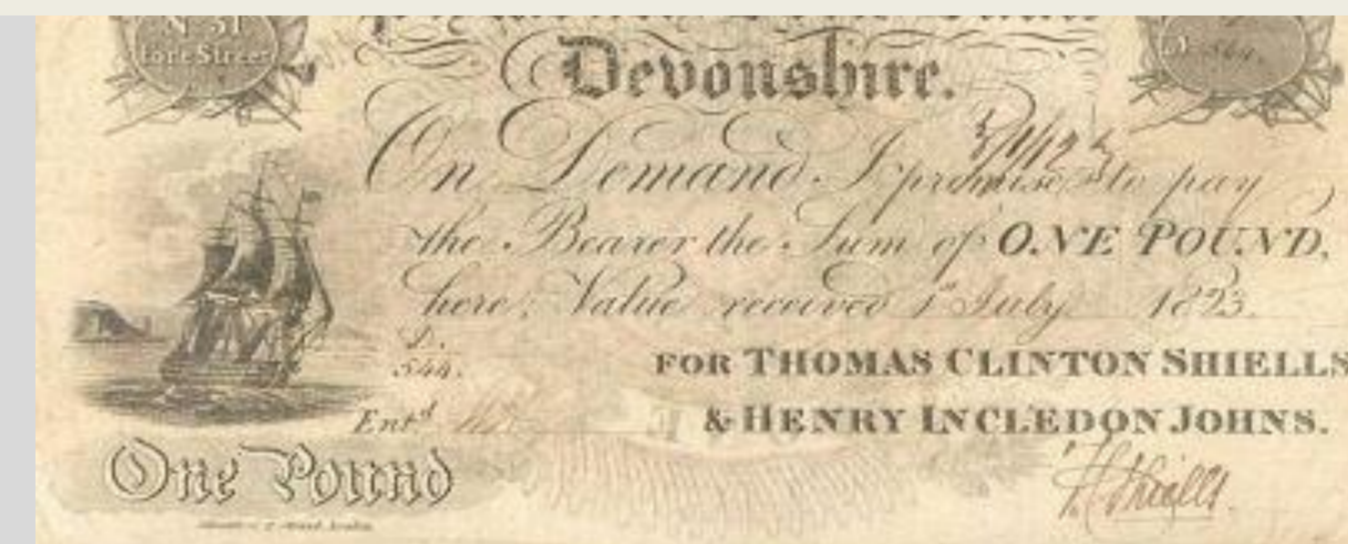 Nº 31
Fore Street
Devonshire.
On Demand I promise to pay
the Bearer the Sum of ONE POUND,
here, Value received 1st July 1823.
D.
544.
FOR THOMAS CLINTON SHIELLS
Entd
& HENRY INCLEDON JOHNS.
One Pound
T. C. Shiells